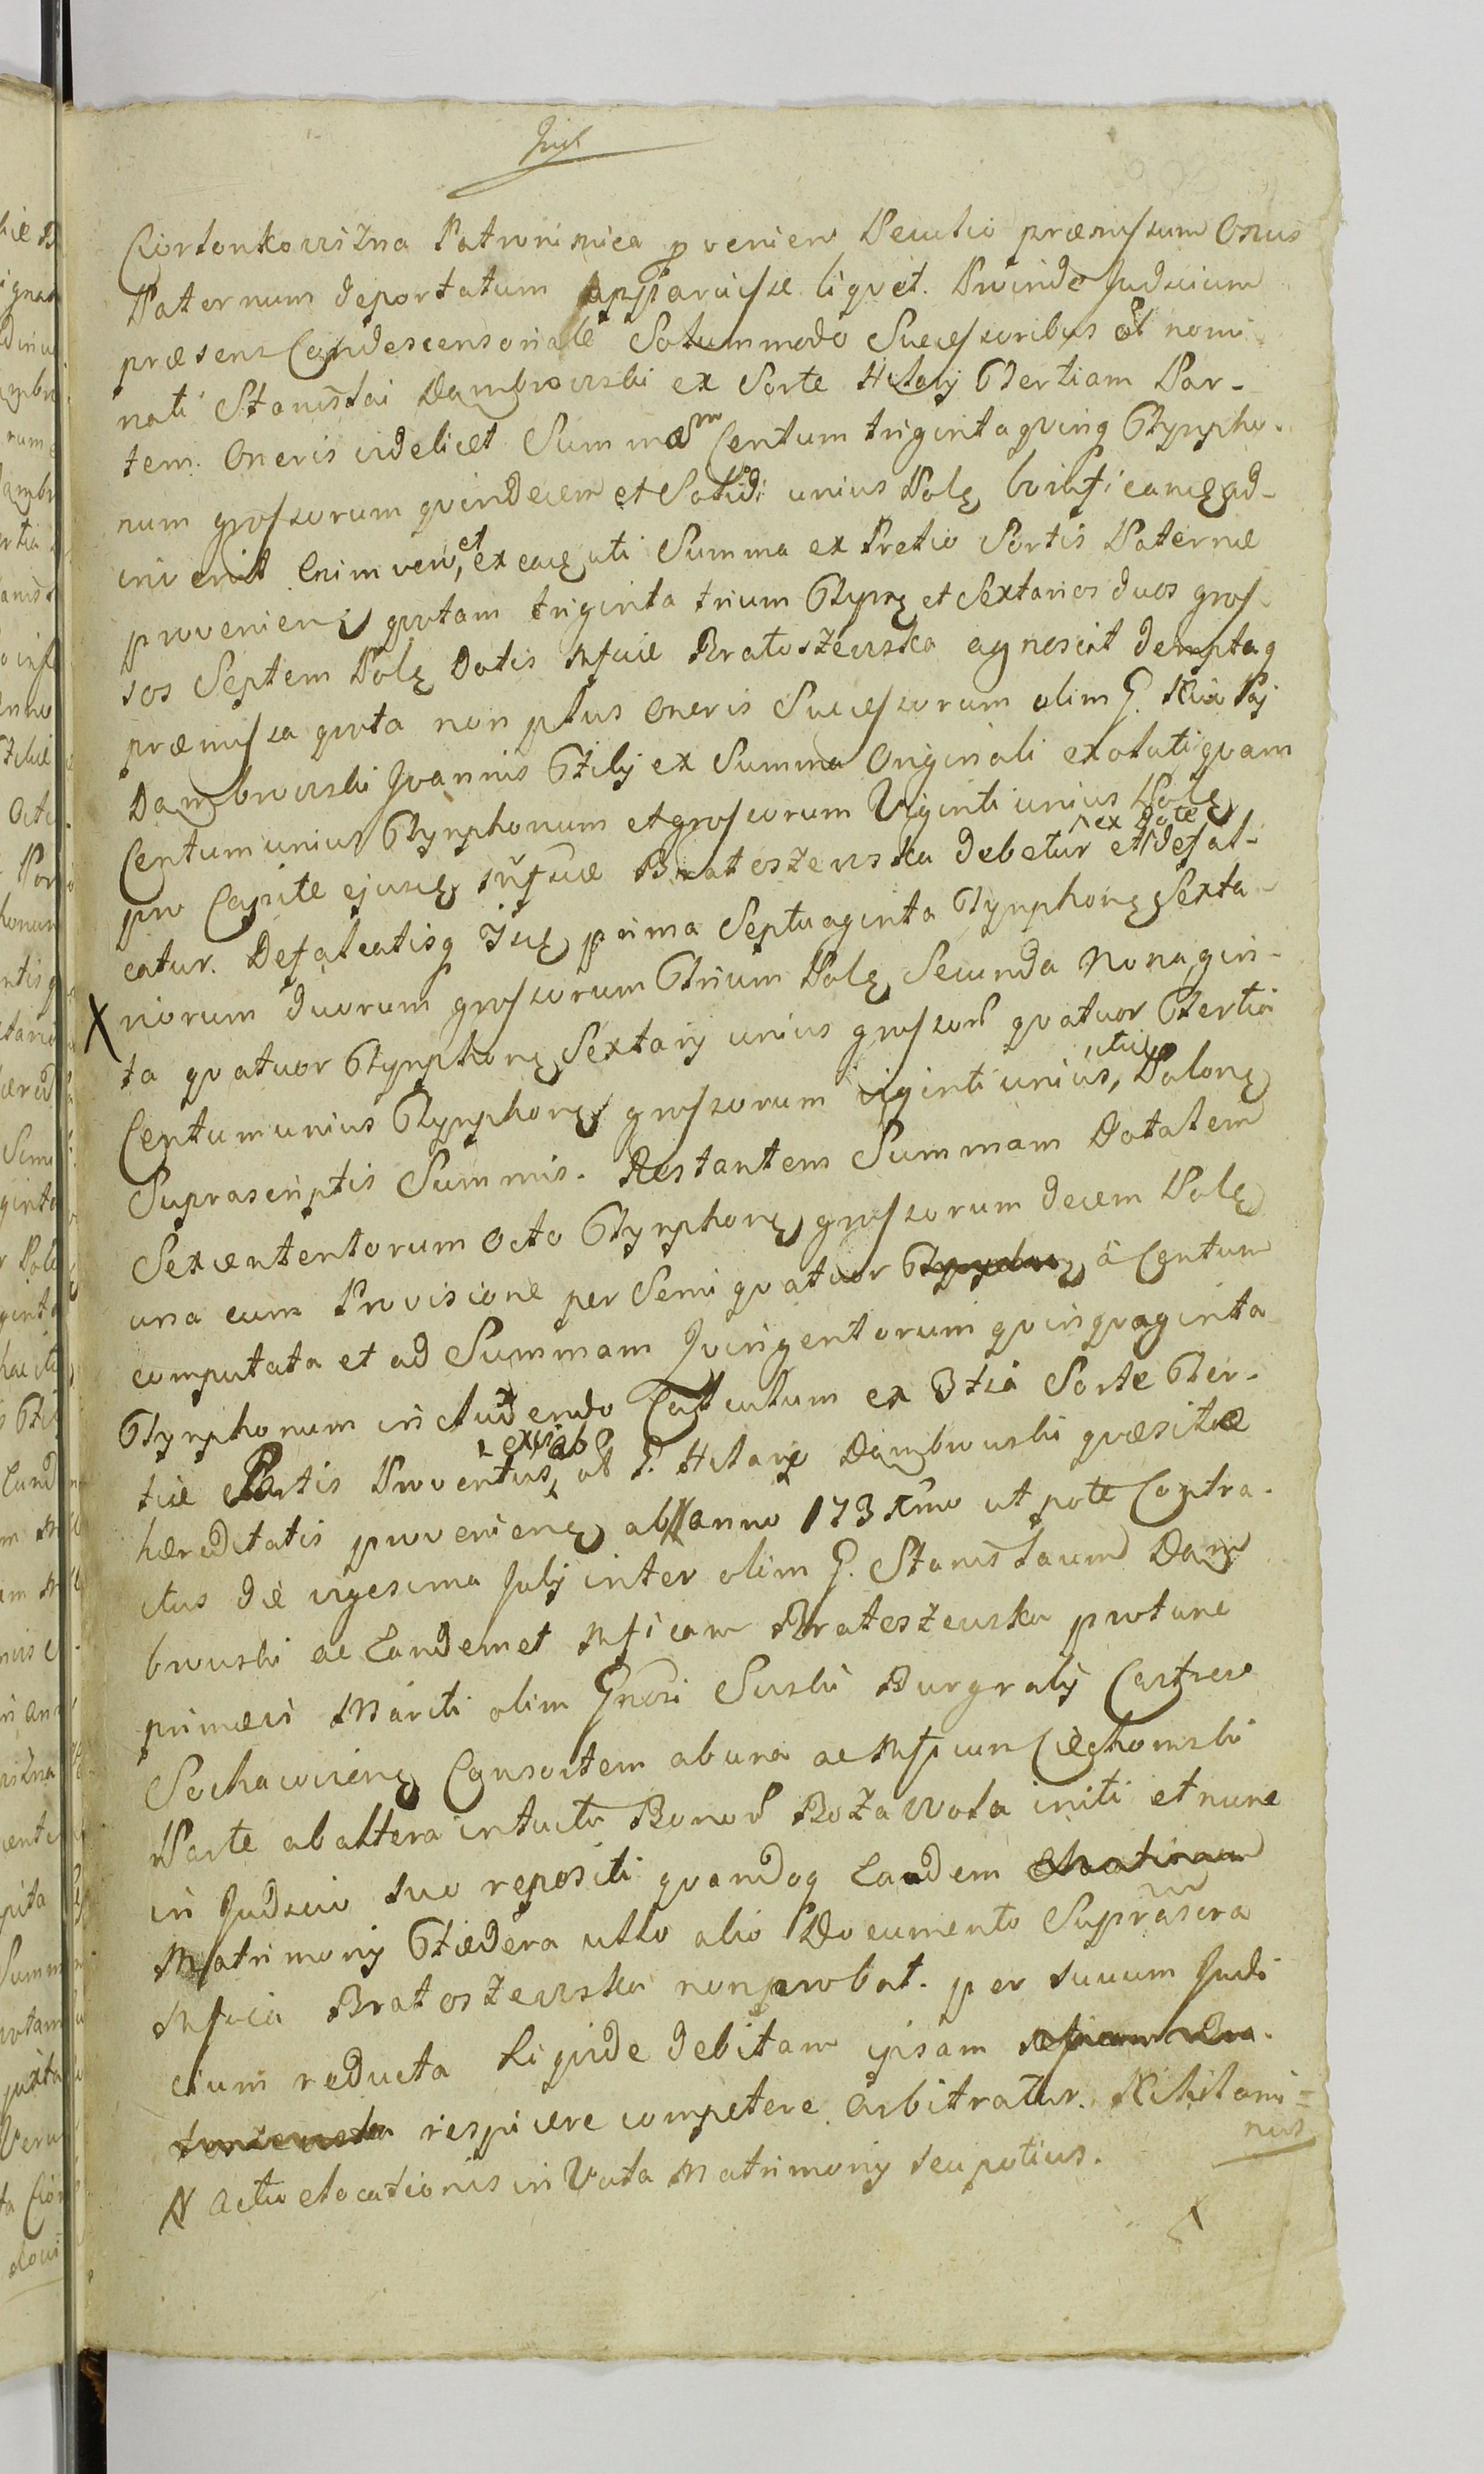 Ciortonkowizna Patronimica provenien Peculio præmissum Onus
Paternum deportatum apparuisse liqvet. Proinde Judicium
præsens Condescensoriale Solummodo Successoribus nomi
nati Stanislai Dąmbrowski ex Sorte Hilarij Tertiam Par-
tem Oneris videlicet Summam Centum triginta qvinq Tympho-
num grossorum qvindecem et Solidi unius Polę bonificancę ad-
invenit Enimvero, et ex eacę uti Summa ex Pretio Sortis Paternæ
provenien qvotam triginta trium Tymę et Sextarios duos gros
sos Septem Polę Dotis Mfcæ Bratoszewska agnoscit demptaq
præmissa qvota non plus Oneris Successorum olim G.
Dąmbrowski Joannis Filij ex Summa Originali exoluti qvam
Centum unius Tymphonum et grossorum Viginti unius Polę
pro Capite ejuscę Mfcæ Bratoszewska debetur et ex Dote defal-
catur. Defalcatisq prima Septuaginta Tymphonę Sexta-
X riorum duorum grossorum Trium Polę Secunda Nonagin-
ta qvatuor Tymphonę Sextarij unius grossor qvatuor Tertia
Centum unius Tymphonę grossorum viginti unius, Polonę
Suprascriptis Summis. Restantem Summam Dotalem
Sexcententorum Octo Tymphonę grossorum decem Polę
una cum Provisione per Semi qvatuor à Centum
computata et ad Summam Qvingentorum qvinqvaginta
Tymphonum includendo Calculum ex 3tia Sorte Ter-
tiæ Partis Proventus, G. Hilario Dąmbrowski qvæsitæ
hæreditatis provenienę ab anno 173 utpote Contra-
ctus die vigesima Julij inter olim G. Stanislaum Dąm
browski ac Eandemet Mficam Bratoszewska protunc
primævi Mariti olim Gnosi Suski Burgrabij Castren
Sochacviensę Consortem ab una ac Mfcum Ciechomski
Parte ab altera intuitu Bonor Boża Wola initi et nunc
in Judicio suo repositi qvandoq Eandem
Matrimonij Fædera ullo alio Documento Suprascra
Mfica Bratoszewska non probat. per suum Judi
cium reducta Liqvide debitam ipsam
respicere competere arbitratur. Nihilomi=
nus
N Actu elocationis in Vota Matrimonij seu potius.